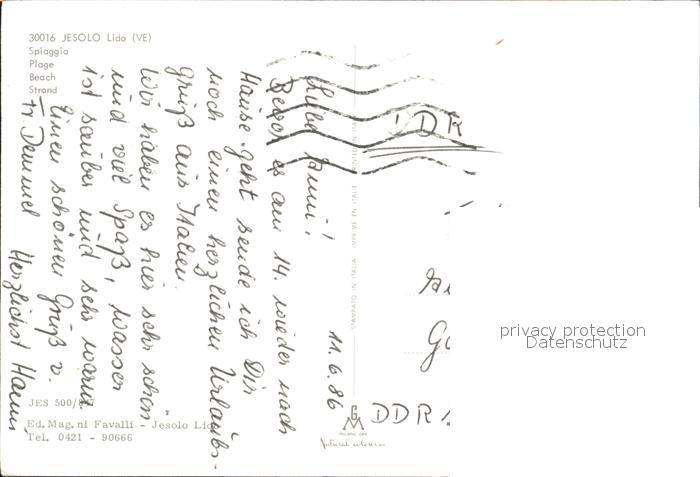 30016 JESOLO Lido (VE)
Spiaggia
Plage
Beach
Strand
11.6.86
Liebe Anni!
Bevor es am 14. wieder nach
Hause geht sende ich Dir
noch einen herzlichen Urlaubs-
gruß aus Italien.
Wir haben es hier sehr schön
und viel Spaß, Wasser
ist sauber und sehr warm
Einen schönen Gruß v.
Fr Demmel Herzlichst Hanni
DDR
DDR
privacy protection
Datenschutz
JES 500/
Ed. Mag. ni Favalli - Jesolo Lido
Tel. 0421 - 90666